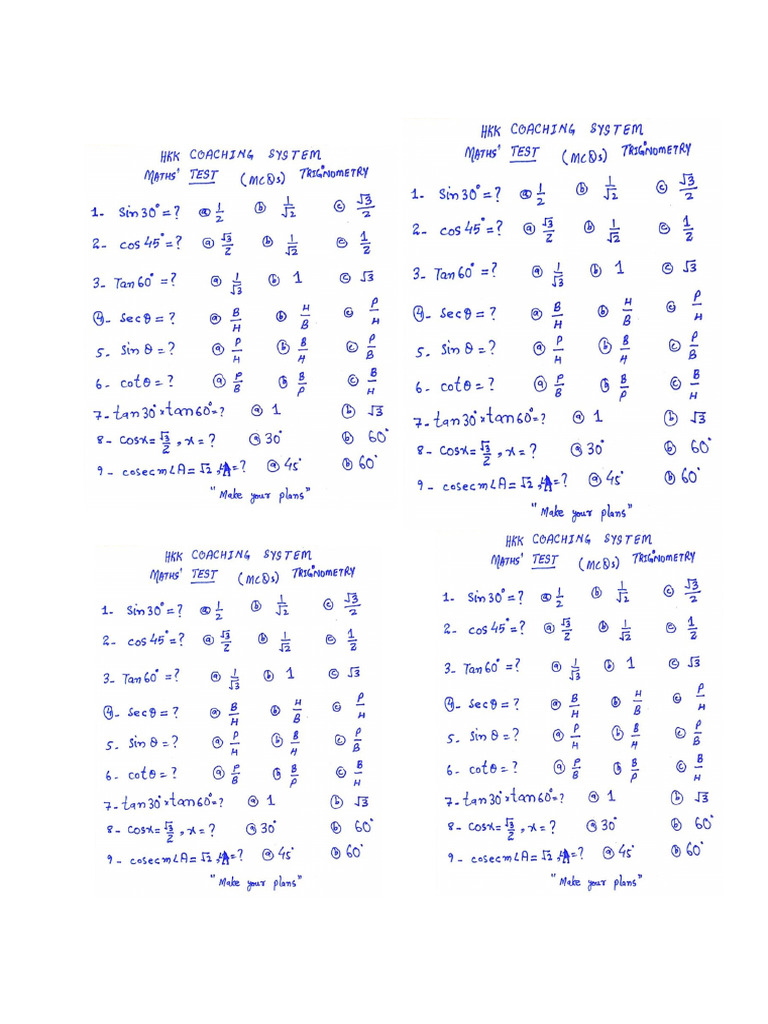 HKK COACHING SYSTEM
MATHS' TEST (MCQs) TRIGNOMETRY
1- Sin30°=? ⓐ 1/2 ⓑ 1/√2 ⓒ √3/2
2- cos45°=? ⓐ √3/2 ⓑ 1/√2 ⓒ 1/2
3- Tan60°=? ⓐ 1/√3 ⓑ 1 ⓒ √3
④- Secθ=? ⓐ B/H ⓑ H/B ⓒ P/H
5- Sinθ=? ⓐ P/H ⓑ B/H ⓒ P/B
6- cotθ=? ⓐ P/B ⓑ B/P ⓒ B/H
7- tan30°×tan60°=? ⓐ 1 ⓑ √3
8- Cosx=√3/2, x=? ⓐ 30° ⓑ 60°
9- cosecm∠A=√2, ∠A=? ⓐ 45° ⓑ 60°
"Make your plans"
HKK COACHING SYSTEM
MATHS' TEST (MCQs) TRIGNOMETRY
1- Sin30°=? ⓐ 1/2 ⓑ 1/√2 ⓒ √3/2
2- cos45°=? ⓐ √3/2 ⓑ 1/√2 ⓒ 1/2
3- Tan60°=? ⓐ 1/√3 ⓑ 1 ⓒ √3
④- Secθ=? ⓐ B/H ⓑ H/B ⓒ P/H
5- Sinθ=? ⓐ P/H ⓑ B/H ⓒ P/B
6- cotθ=? ⓐ P/B ⓑ B/P ⓒ B/H
7- tan30°×tan60°=? ⓐ 1 ⓑ √3
8- Cosx=√3/2, x=? ⓐ 30° ⓑ 60°
9- cosecm∠A=√2, ∠A=? ⓐ 45° ⓑ 60°
"Make your plans"
HKK COACHING SYSTEM
MATHS' TEST (MCQs) TRIGNOMETRY
1- Sin30°=? ⓐ 1/2 ⓑ 1/√2 ⓒ √3/2
2- cos45°=? ⓐ √3/2 ⓑ 1/√2 ⓒ 1/2
3- Tan60°=? ⓐ 1/√3 ⓑ 1 ⓒ √3
④- Secθ=? ⓐ B/H ⓑ H/B ⓒ P/H
5- Sinθ=? ⓐ P/H ⓑ B/H ⓒ P/B
6- cotθ=? ⓐ P/B ⓑ B/P ⓒ B/H
7- tan30°×tan60°=? ⓐ 1 ⓑ √3
8- Cosx=√3/2, x=? ⓐ 30° ⓑ 60°
9- cosecm∠A=√2, ∠A=? ⓐ 45° ⓑ 60°
"Make your plans"
HKK COACHING SYSTEM
MATHS' TEST (MCQs) TRIGNOMETRY
1- Sin30°=? ⓐ 1/2 ⓑ 1/√2 ⓒ √3/2
2- cos45°=? ⓐ √3/2 ⓑ 1/√2 ⓒ 1/2
3- Tan60°=? ⓐ 1/√3 ⓑ 1 ⓒ √3
④- Secθ=? ⓐ B/H ⓑ H/B ⓒ P/H
5- Sinθ=? ⓐ P/H ⓑ B/H ⓒ P/B
6- cotθ=? ⓐ P/B ⓑ B/P ⓒ B/H
7- tan30°×tan60°=? ⓐ 1 ⓑ √3
8- Cosx=√3/2, x=? ⓐ 30° ⓑ 60°
9- cosecm∠A=√2, ∠A=? ⓐ 45° ⓑ 60°
"Make your plans"